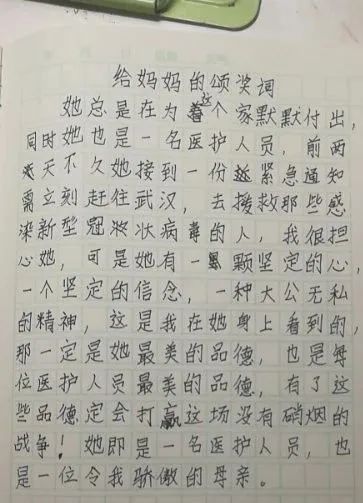 给妈妈的颁奖词
她总是在为这个家默默付出，
同时她也是一名医护人员，前两
天不久她接到一份紧急通知
需立刻赶往武汉，去援救那些感
染新型冠状病毒的人，我很担
心她，可是她有一颗坚定的心，
一个坚定的信念，一种大公无私
的精神，这是我在她身上看到的，
那一定是她最美的品德，也是每
位医护人员最美的品德，有了这
些品德定会打赢这场没有硝烟的
战争！她即是一名医护人员，也
是一位令我骄傲的母亲。